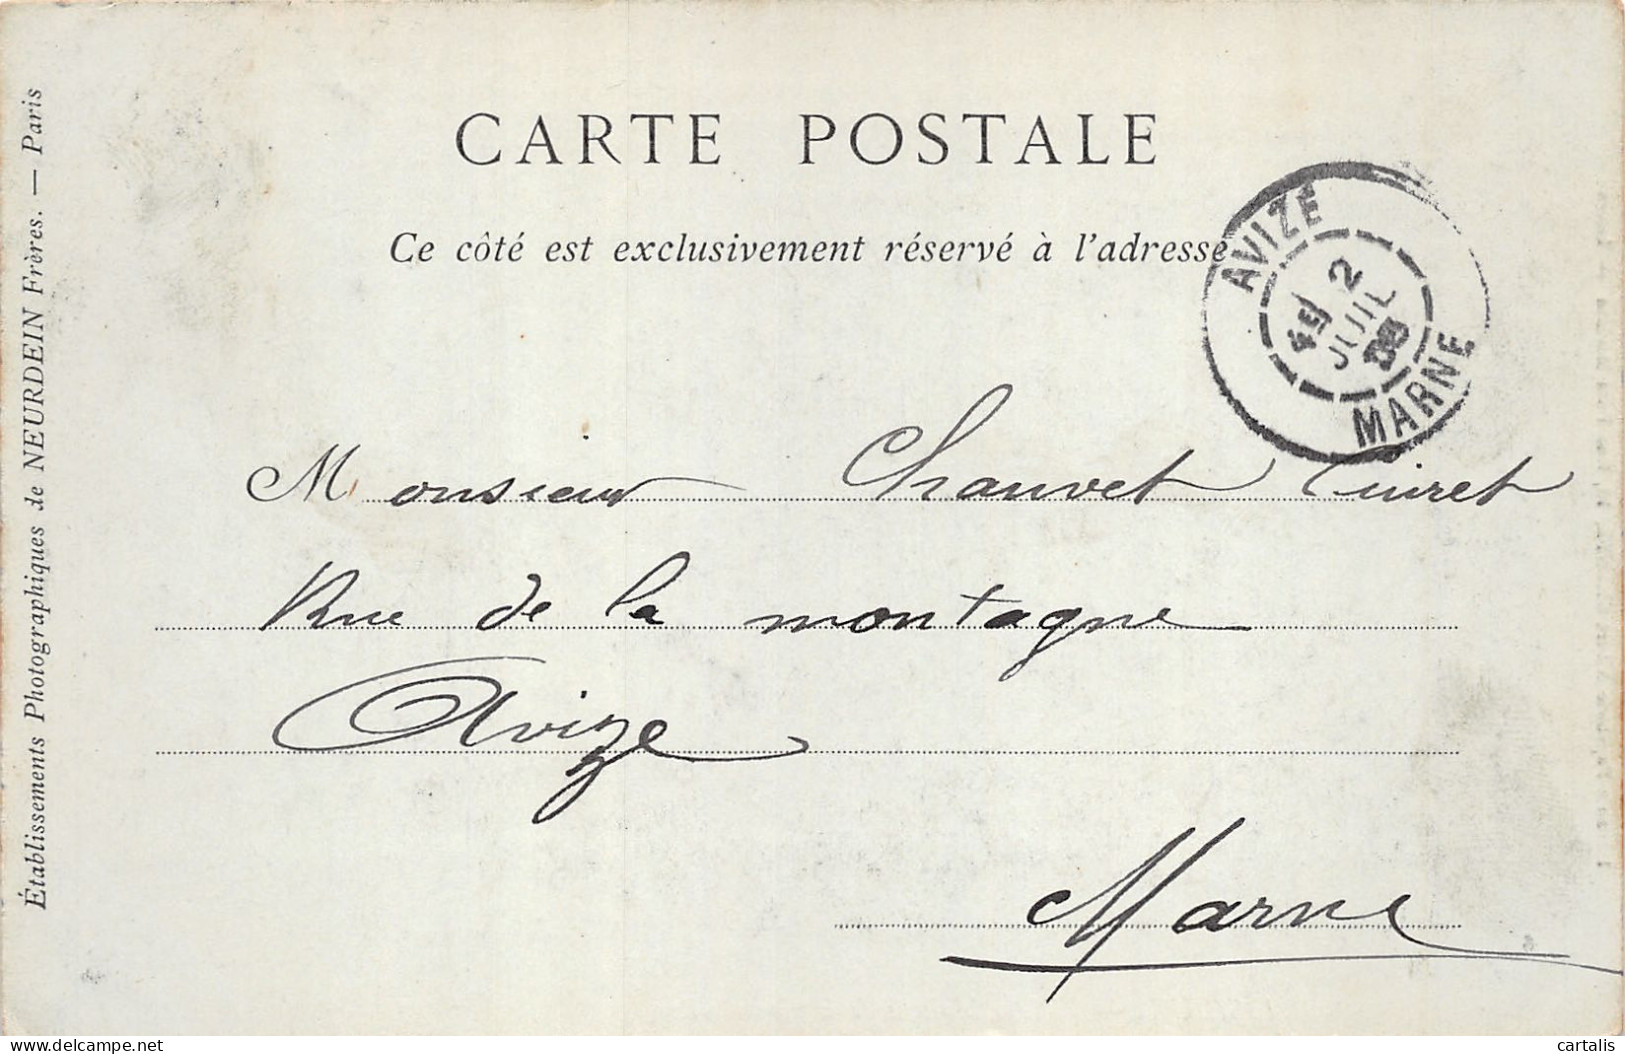 CARTE POSTALE
Ce côté est exclusivement réservé à l'adresse
AVIZE
2
JUIL
MARNE
Monsieur Chauvet
Rue de la montagne
Avize
Marne
Établissements Photographiques de NEURDEIN Frères. — Paris
delcampe.net
cartalis